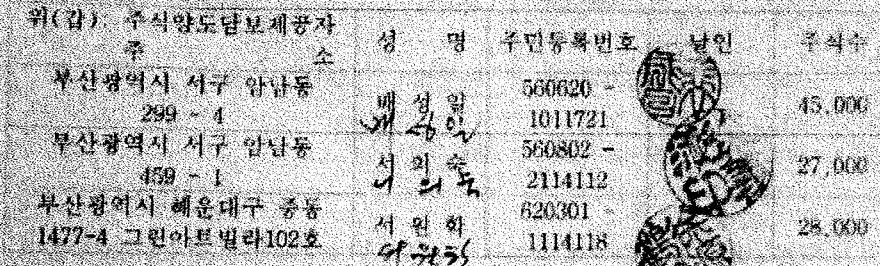 위(갑): 주식양도담보제공자
주 소 성 명 주민등록번호 날인 주식수
부산광역시 서구 암남동
299 - 4
배 성 일
배 성 일
560620 -
1011721
45,000
부산광역시 서구 암남동
459 - 1
서 의 숙
서 의 숙
560802 -
2114112
27,000
부산광역시 해운대구 중동
1477-4 그린아트빌라102호
서 원 학
서 원 학
620301 -
1114118
28,000